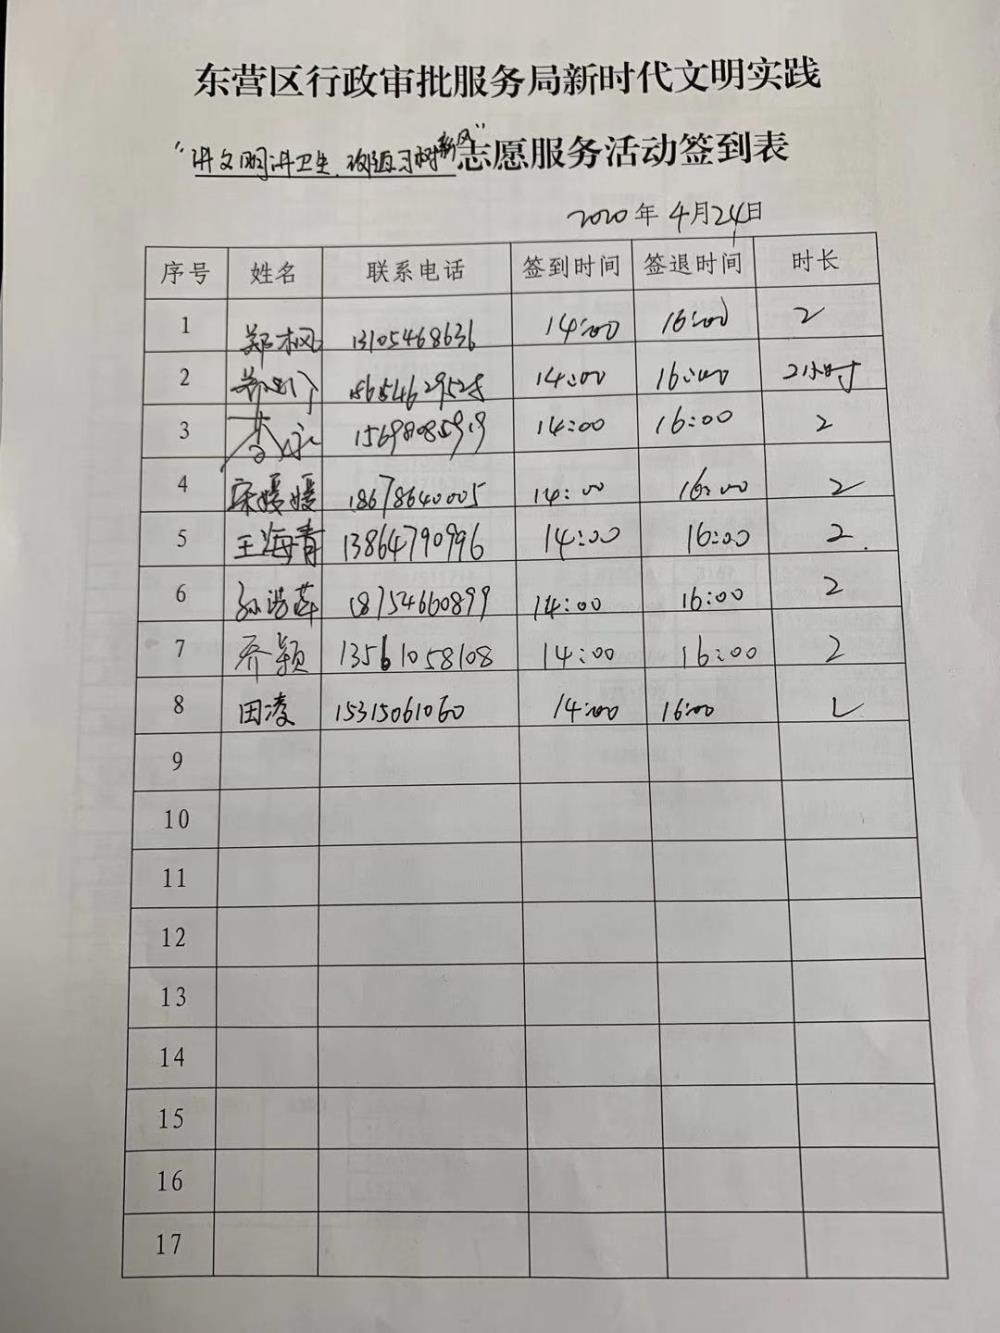 东营区行政审批服务局新时代文明实践
“讲文明讲卫生,改陋习树新风”志愿服务活动签到表
2020年4月24日
序号 姓名 联系电话 签到时间 签退时间 时长
1 郑枫 13105468636 14:00 16:00 2
2 15654629528 14:00 16:00 2小时
3 李永 15698085919 14:00 16:00 2
4 宋媛媛 18678640005 14:00 16:00 2
5 王海青 13864790996 14:00 16:00 2.
6 孙浩萍 18754660899 14:00 16:00 2
7 乔颖 13561058108 14:00 16:00 2
8 田凌 15315061060 14:00 16:00 2
9
10
11
12
13
14
15
16
17